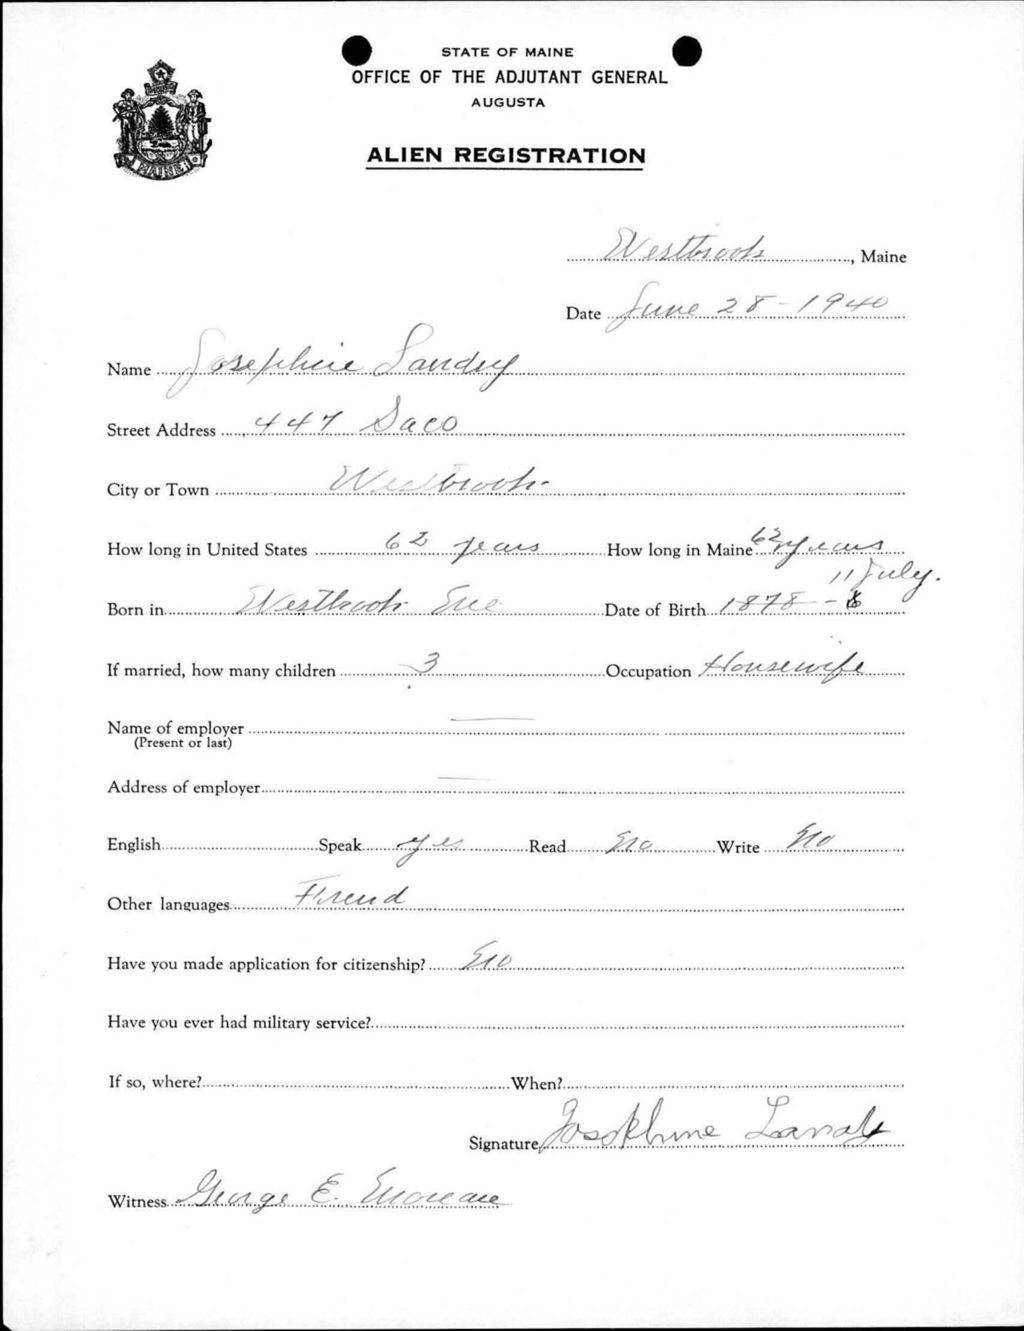 STATE OF MAINE
OFFICE OF THE ADJUTANT GENERAL
AUGUSTA
MAINE
ALIEN REGISTRATION
Westbrook, Maine
Date June 28 - 1940
Name Josephine Landry
Street Address 447 Saco
City or Town Westbrook
How long in United States 62 years How long in Maine 62 years
11 July.
Born in Westbrook Me Date of Birth 1878 -
If married, how many children 3 Occupation Housewife
Name of employer —
(Present or last)
Address of employer —
English Speak yes Read No Write No
Other languages
Have you made application for citizenship? No
Have you ever had military service?
If so, where? When?
Signature Josephine Landry
Witness George E. Moreau